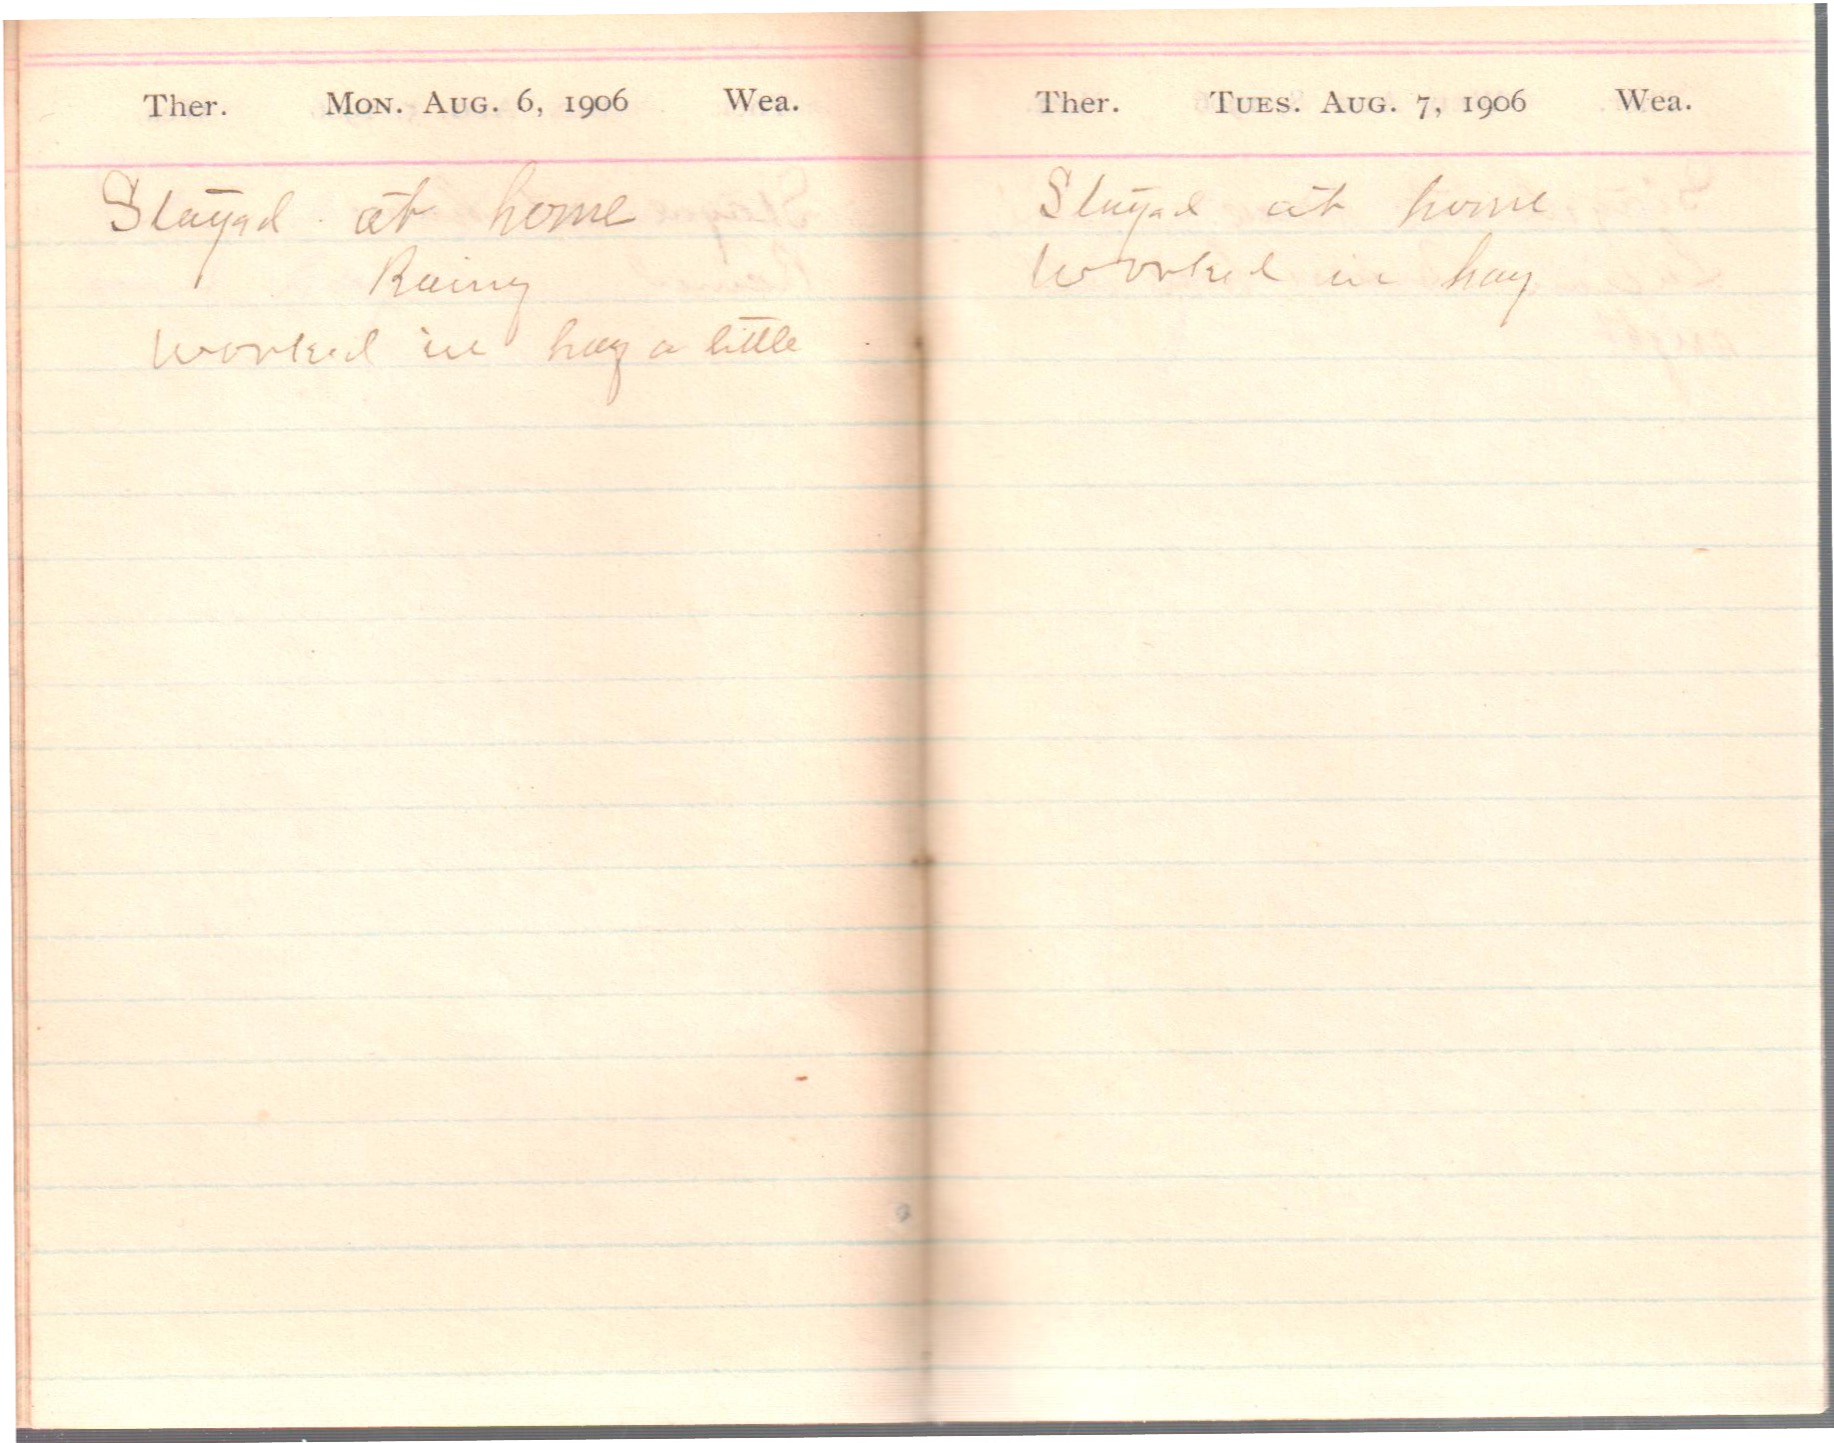 Ther. Mon. Aug. 6, 1906 Wea.
Stayed at home
Rainy
worked in hay a little
Ther. Tues. Aug. 7, 1906 Wea.
Stayed at home
Worked in hay